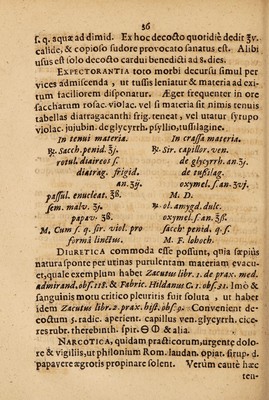 36
s. q. aquæ ad dimid. Ex hoc decocto quotidiè dedit ℥v.
calide, & copioso sudore provocato sanatus est. Alibi
usus est solo decocto cardui benedicti ad s. dies.
EXPECTORANTIA toto morbi decursu simul per
vices admiscenda, ut tussis leniatur & materia ad exi-
tum faciliorem disponatur. Æger frequenter in ore
saccharum rosac. violac. vel si materia sit nimis tenuis
tabellas diatragacanthi frig. teneat, vel utatur syrupo
violac. jujubin. de glycyrrh. psyllio, tussilagine.
In tenui materia.
℞. Sacch. penid. ℥j.
rotul. diaireos s.
diatrag. frigid.
an. ʒij
passul. enucleat. ℥ß.
sem. malv. ʒj.
papav. ℥ß.
M. Cum s. q. sir. viol. pro
forma linctus.
In crassa materia.
℞. Sir. capillor. ven.
de glycyrrh. an. ℥j.
de tussilag.
oxymel. s. an. ʒvj.
M. D.
℞ ol. amygd. dulc.
oxymel. s. an. ℥ß.
sacch. penid. q. s.
M. F. lohoch.
DIURETICA commoda esse possunt, quia sæpius
natura sponte per urinas putulentam materiam evacu-
et, quale exemplum habet Zacutus libr. 1. de prax. med.
admirand. obs. 118. & Fabric. Hildanus C. 1. obs. 31. Imò &
sanguinis motu critico pleuritis fuit soluta, ut habet
idem Zacutus libr. 2. prax. hist. obs. 9. Convenient de-
coctum 5. radic. aperient. capillus ven. glycyrrh. cic-
eres rubr. therebinth. spir. & alia.
NARCOTICA, quidam practicorum, urgente dolo-
re & vigiliis, ut philonium Rom. laudan. opiat. sirup. d.
papavere ægrotis propinare solent. Verùm cautè hæc
ten-